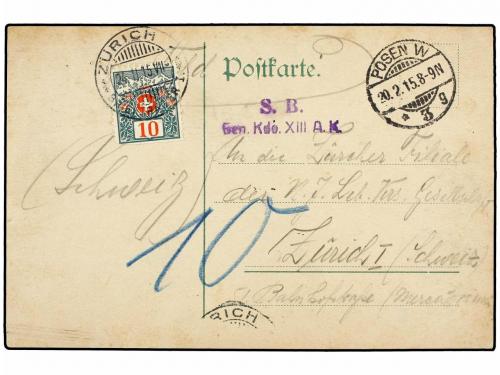 ZÜRICH
10
Postkarte.
POSEN W
20.2.15.8-9N
* 3 g
S. B.
Gen. Kdo. XIII A. K.
An die Zürcher Filiale
der N. J. Leb. Vers. Gesellschaft
(Schweiz)
10
Zürich I (Schweiz)
Bahnhofstrasse
RICH